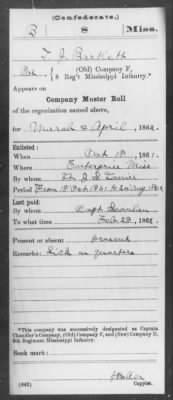 (Confederate.)
B 8 Miss.
T. J.
(Old) Company F,
8 Reg't Mississippi Infantry.*
Appears on
Company Muster Roll
of the organization named above,
for March & April, 1862.
Enlisted:
When Oct 18, 1861.
Where Enterprise Miss
By whom
Period
Last paid:
By whom Capt
To what time Feb 28, 1862.
Present or absent present
Remarks: Sick in quarters
*This company was successively designated as Captain
Chandler's Company, (Old) Company F, and (New) Company D,
8th Regiment Mississippi Infantry.
Book mark:
(642)
Copyist.